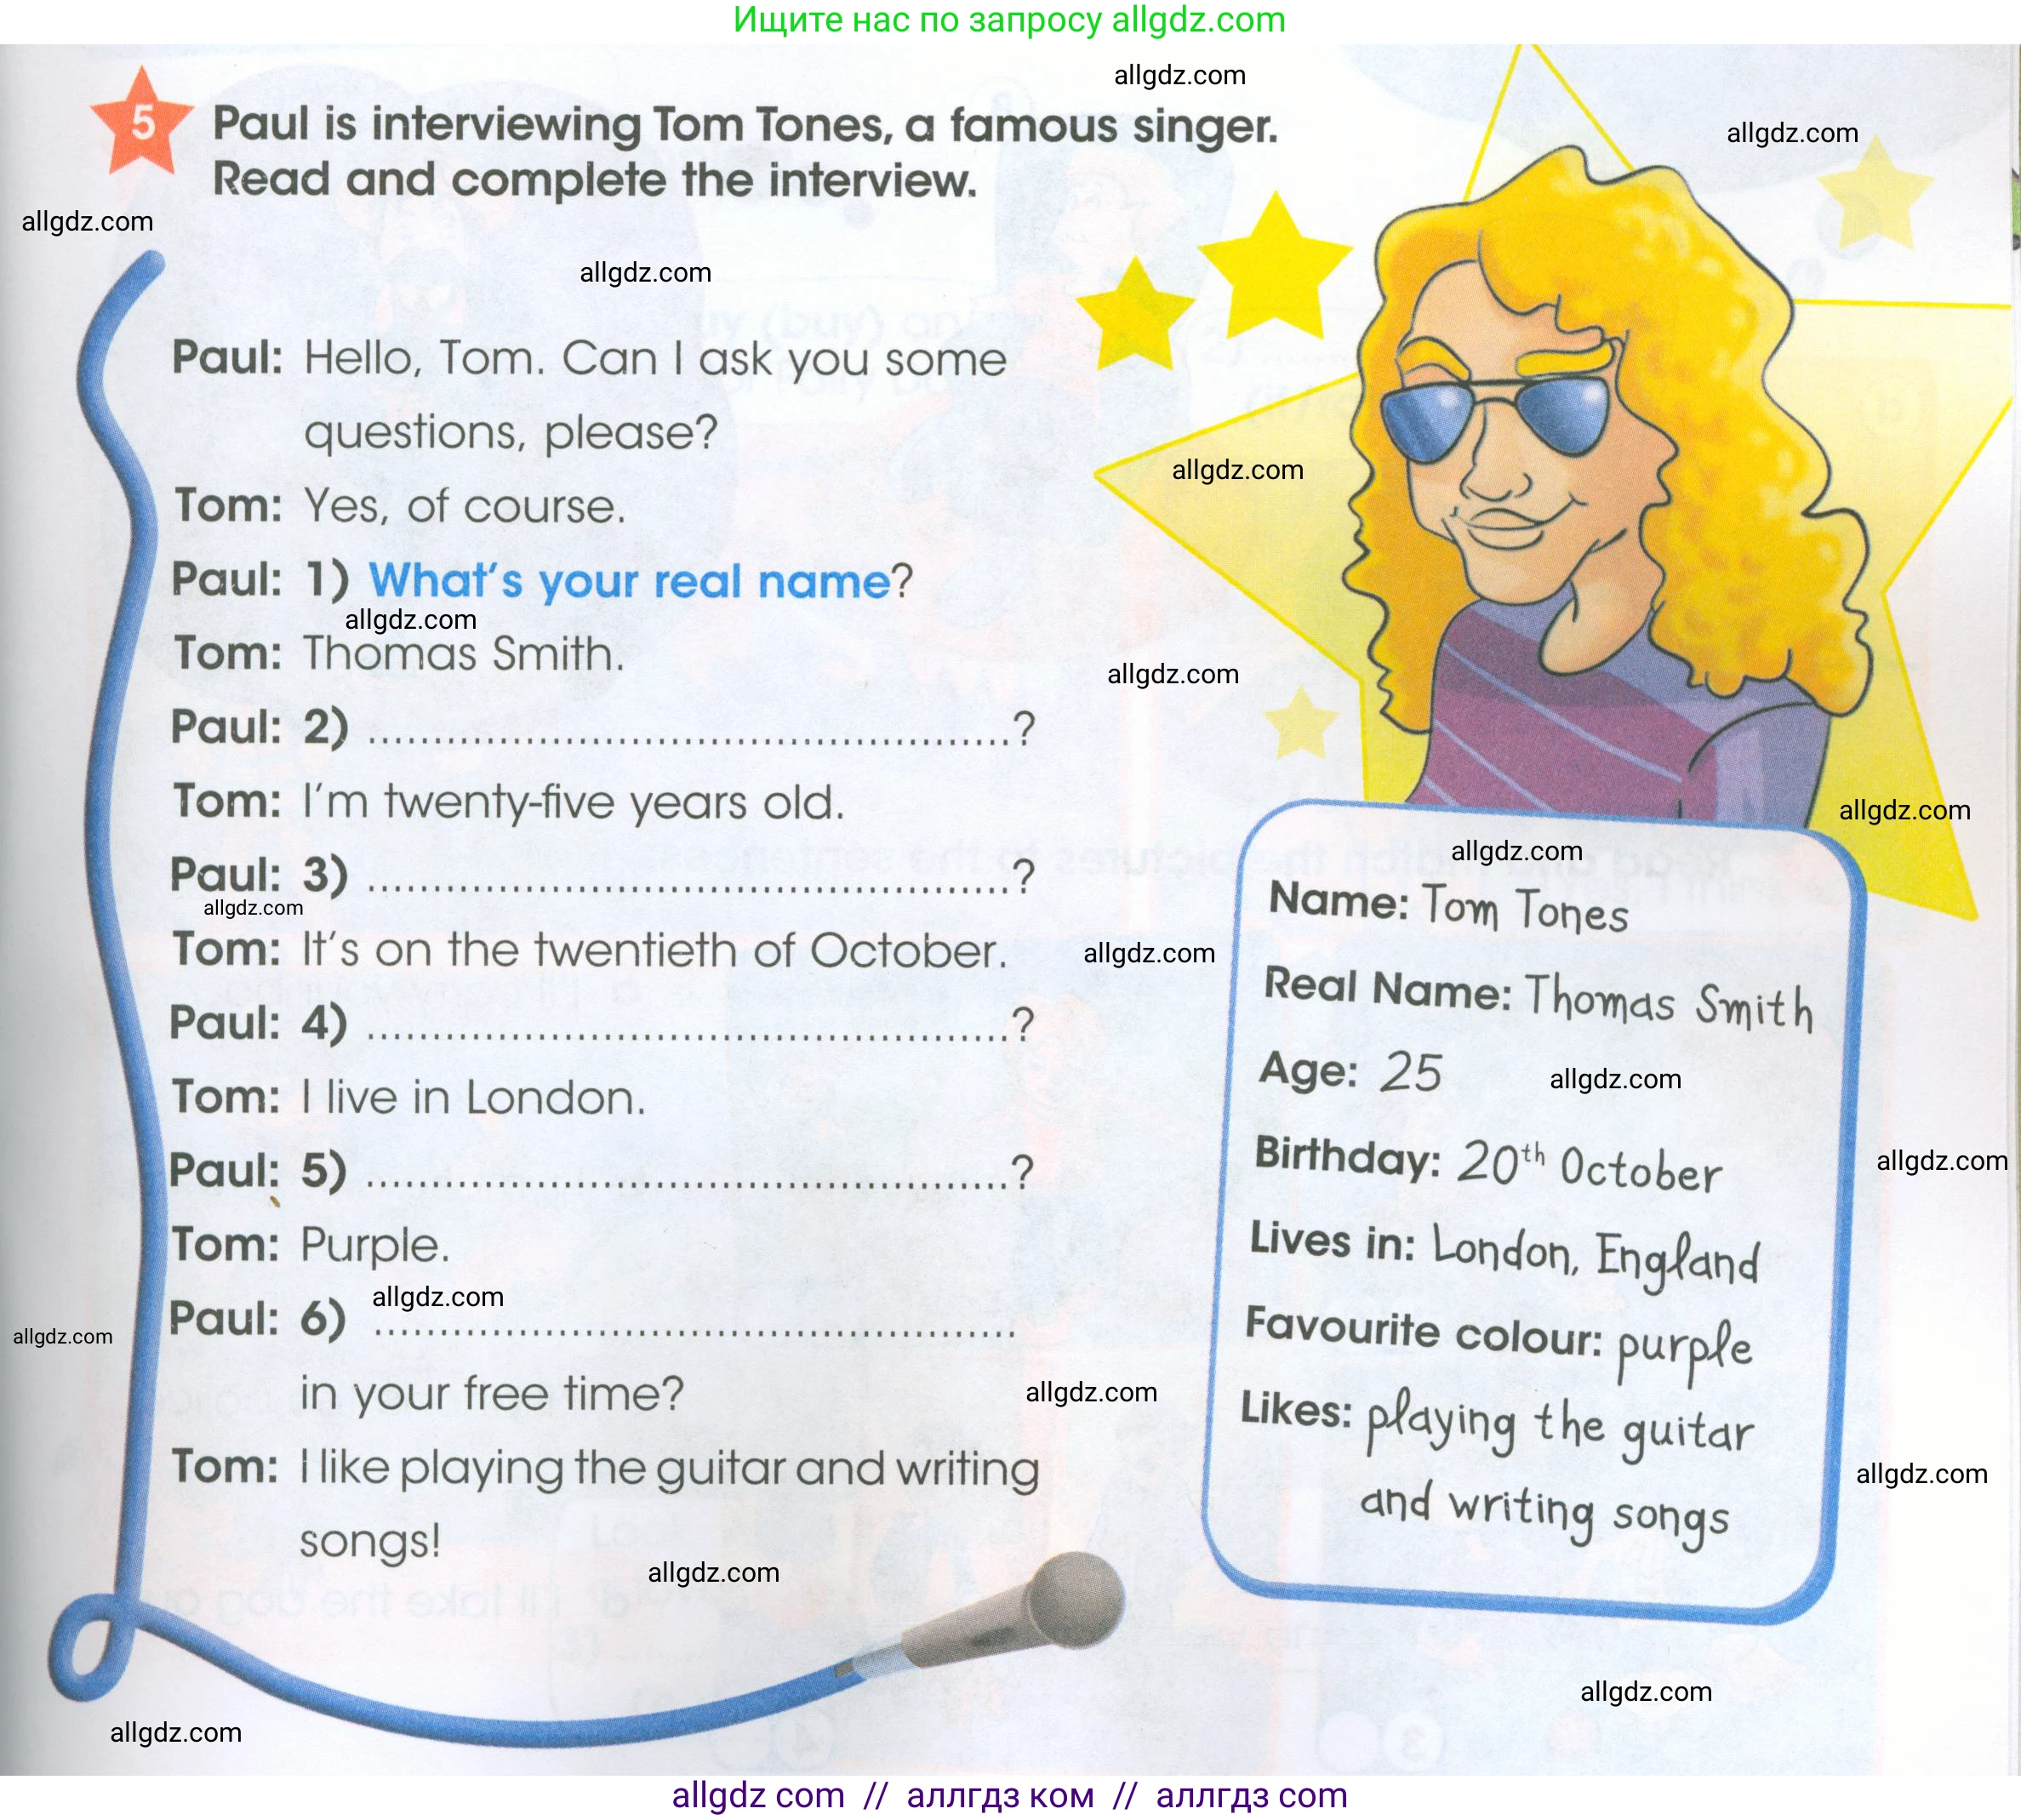 Ищите нас по запросу allgdz.com
allgdz.com
allgdz.com
5 Paul is interviewing Tom Tones, a famous singer.
Read and complete the interview.
allgdz.com
allgdz.com
Paul: Hello, Tom. Can I ask you some
questions, please?
allgdz.com
Tom: Yes, of course.
Paul: 1) What's your real name?
allgdz.com
Tom: Thomas Smith.
allgdz.com
Paul: 2) ................................................?
Tom: I'm twenty-five years old.
allgdz.com
Paul: 3) ................................................?
allgdz.com
Tom: It's on the twentieth of October.
allgdz.com
Paul: 4) ................................................?
Tom: I live in London.
Paul: 5) ................................................?
Tom: Purple.
allgdz.com
Paul: 6) ................................................
allgdz.com
in your free time?
allgdz.com
Tom: I like playing the guitar and writing
songs!
allgdz.com
allgdz.com
Name: Tom Tones
Real Name: Thomas Smith
Age: 25
allgdz.com
Birthday: 20th October
allgdz.com
Lives in: London, England
Favourite colour: purple
Likes: playing the guitar
allgdz.com
and writing songs
allgdz.com
allgdz.com
allgdz com // аллгдз ком // аллгдз com